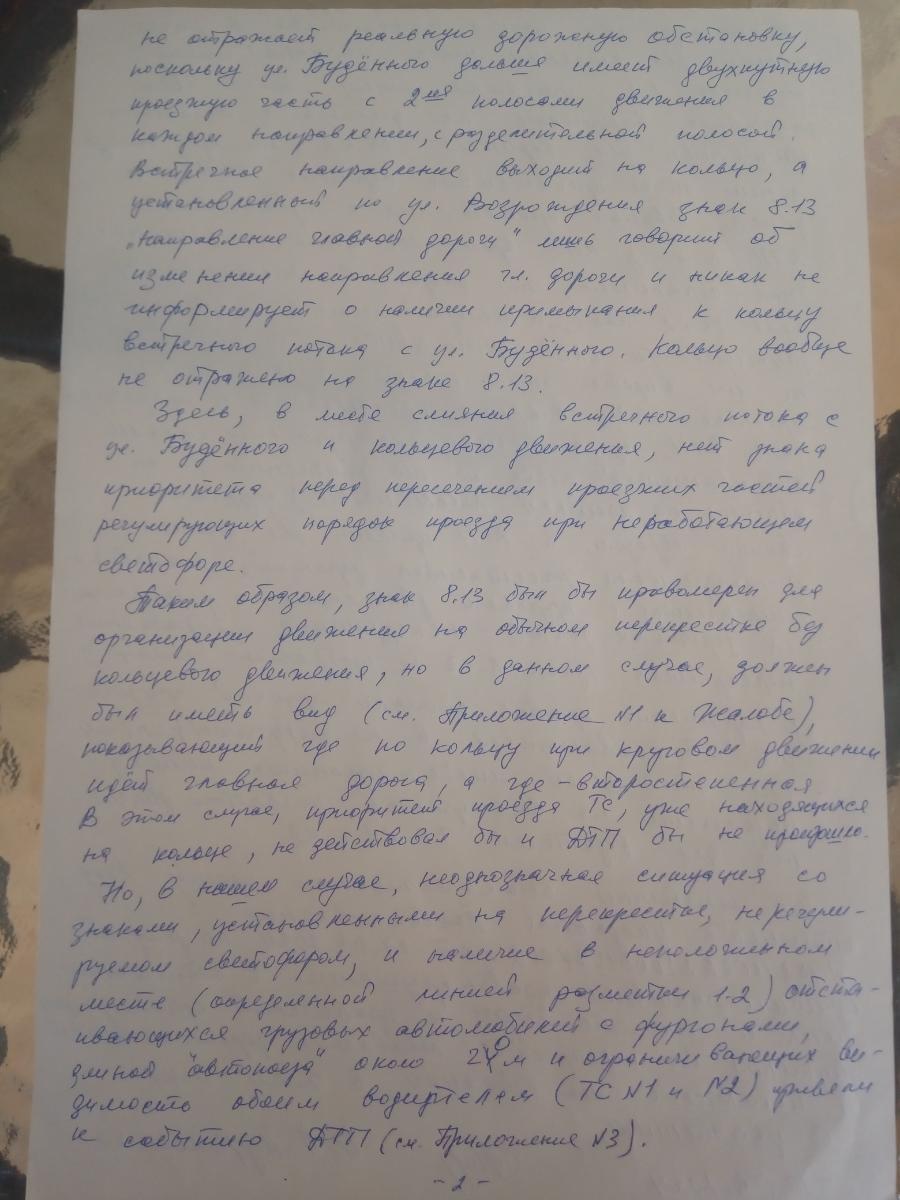 не отражает реальную дорожную обстановку,
поскольку ул. Будённого дальше имеет двухпутную
проезжую часть с 2мя полосами движения в
каждом направлении, с разделительной полосой.
Встречное направление выходит на кольцо, а
установленный по ул. Возрождения знак 8.13
„Направление главной дороги" лишь говорит об
изменении направления гл. дороги и никак не
информирует о наличии примыкания к кольцу
встречного потока с ул. Будённого. Кольцо вообще
не отражено на знаке 8.13.
Здесь, в месте слияния встречного потока с
ул. Будённого и кольцевого движения, нет знака
приоритета перед пересечением проезжих частей
регулирующих порядок проезда при неработающем
светофоре.
Таким образом, знак 8.13 был бы правомерен для
организации движения на обычном перекрестке без
кольцевого движения, но в данном случае, должен
был иметь вид (см. Приложение №1 к Жалобе),
показывающий где по кольцу при круговом движении
идёт главная дорога, а где - второстепенная
В этом случае, приоритет проезда ТС, уже находящихся
на кольце, не действовал бы и ДТП бы не произошло.
Но, в нашем случае, неоднозначная ситуация со
знаками, установленными на перекрестке, нерегули-
руемом светофором, и наличие в неположенном
месте (определенной линией разметки 1.2) отста-
ивающихся грузовых автомобилей с фургонами,
длиной "автопоезда" около 20 м и ограничивающих ви-
димость обоим водителям (ТС №1 и №2) привели
к событию ДТП (см. Приложение №3).
- 2 -